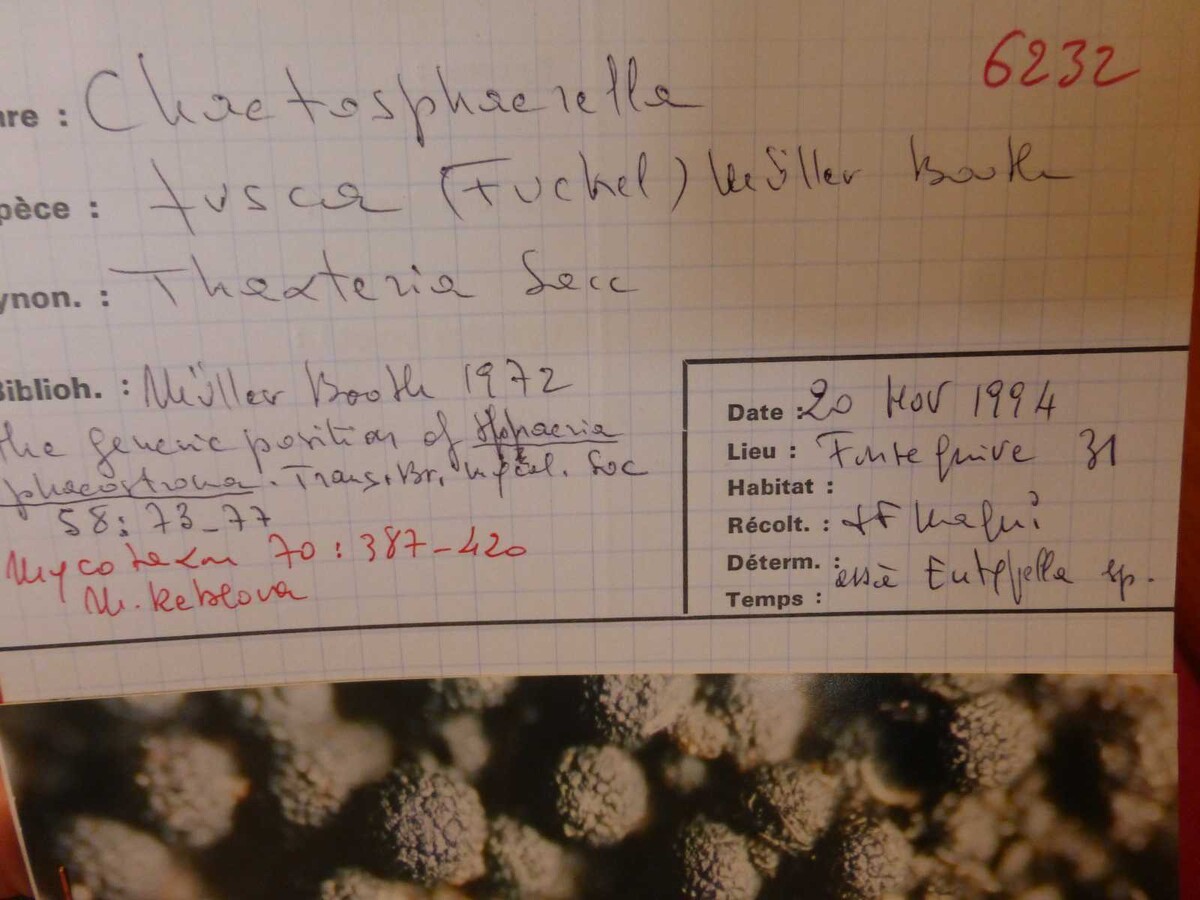 6232
nre : Chaetosphaerella
pèce : fusca (Fuckel) Müller Booth
ynon. : Thaxteria Sacc
Biblioh. : Müller Booth 1972
the generic position of Sphaeria
phaeostroma. Trans. Br. mycol. Soc
58: 73-77
Mycotaxon 70: 387-420
M. Reblova
Date : 20 Nov 1994
Lieu : 31
Habitat :
Récolt. :
Déterm. : Eutypella sp.
Temps :